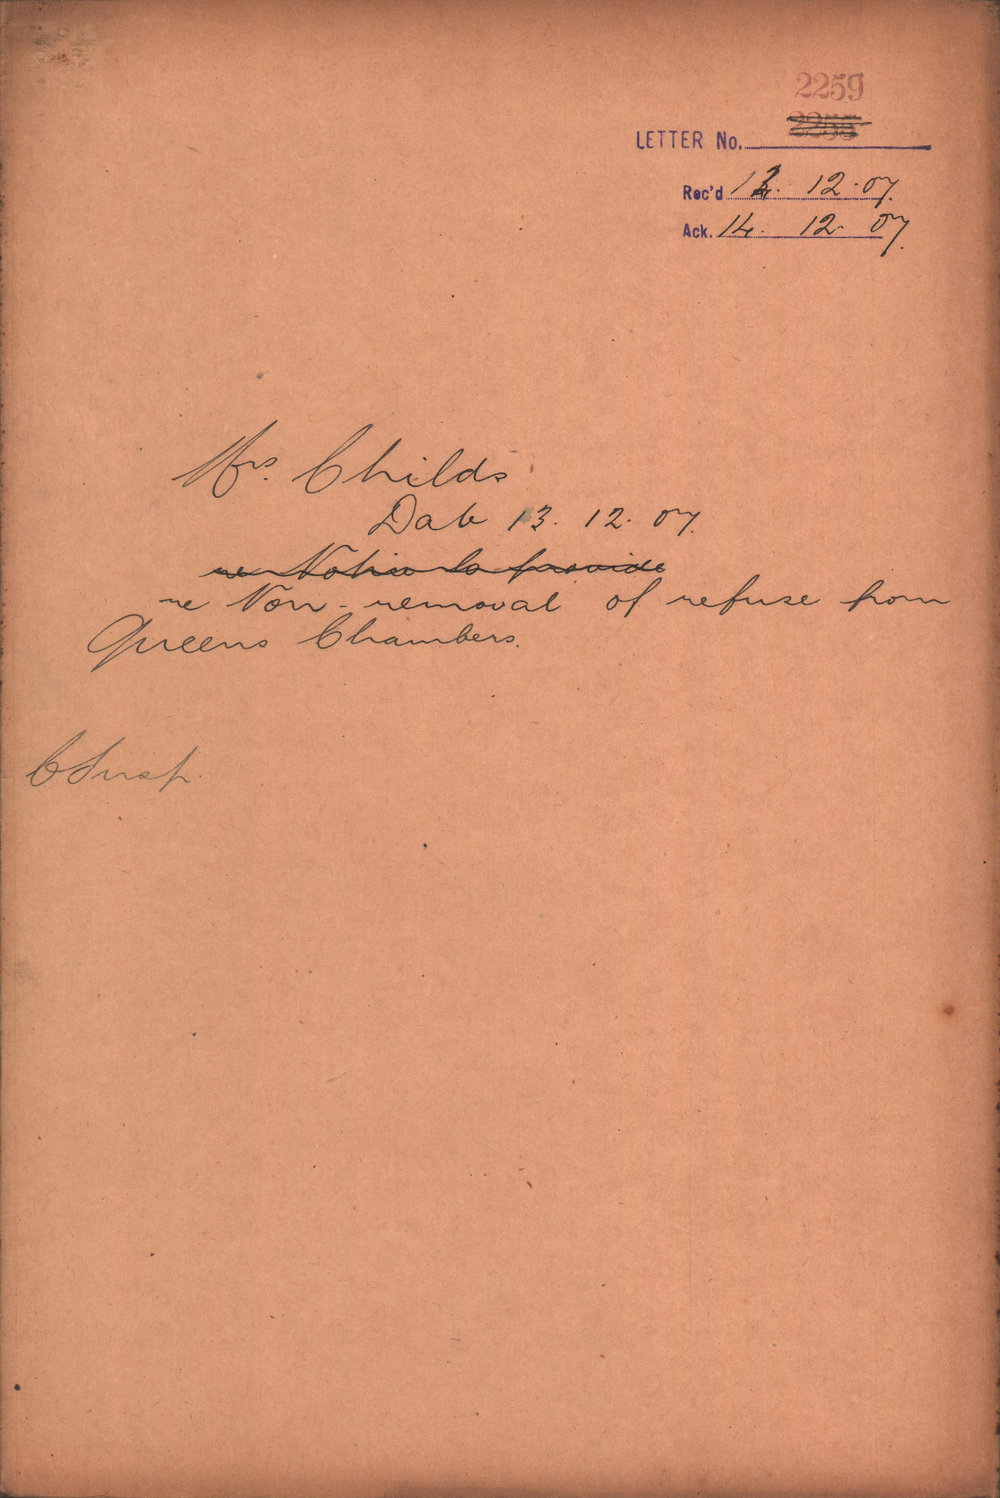 2259
2255
LETTER No.
Rec'd 13. 12. 07.
Ack. 14. 12. 07.
Mrs. Childs
Date 13. 12. 07.
re Notice to provide
re Non-removal of refuse from
Queens Chambers.
C S Insp.